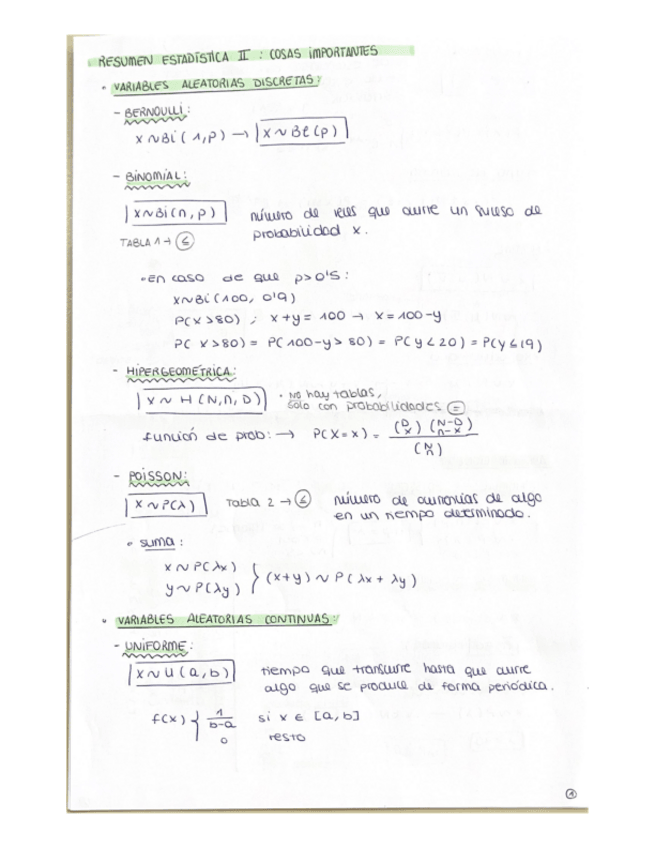 RESUMEN ESTADÍSTICA II : COSAS IMPORTANTES
• VARIABLES ALEATORIAS DISCRETAS:
- BERNOULLI:
X~Bi(1,p) → X~Be(p)
- BINOMIAL:
X~Bi(n,p) número de veces que ocurre un suceso de
TABLA 1 → ≤ probabilidad x.
• en caso de que p>0'5:
X~Bi(100, 0'9)
P(X>80) ; x+y = 100 → x = 100-y
P(X>80) = P(100-y>80) = P(y<20) = P(y≤19)
- HIPERGEOMÉTRICA:
X~H(N,n,D) • No hay tablas,
sólo con probabilidades =
función de prob: → P(X=x) = (D x) (N-D n-x) / (N n)
- POISSON:
X~P(λ) Tabla 2 → ≤ número de ocurrencias de algo
en un tiempo determinado.
• suma:
X~P(λx)
y~P(λy) } (x+y) ~ P(λx + λy)
• VARIABLES ALEATORIAS CONTINUAS:
- UNIFORME:
X~U(a,b) tiempo que transcurre hasta que ocurre
algo que se produce de forma periódica.
f(x) { 1/b-a si x ∈ [a,b]
0 resto
1